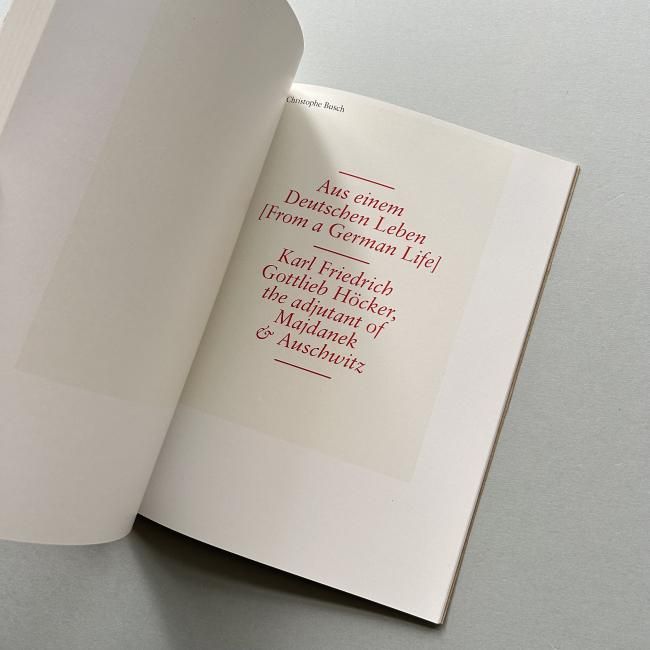 Christophe Busch
Aus einem
Deutschen Leben
[From a German Life]
Karl Friedrich
Gottlieb Höcker,
the adjutant of
Majdanek
& Auschwitz